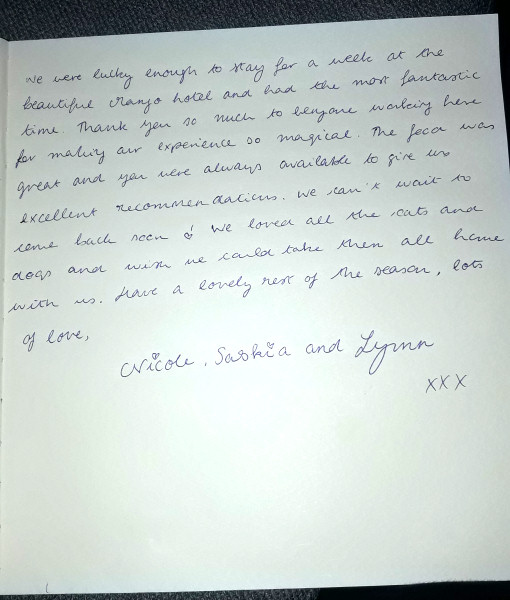 We were lucky enough to stay for a week at the
beautiful hotel and had the most fantastic
time. Thank you so much to everyone working here
for making our experience so magical. The food was
great and you were always available to give us
excellent recommendations. We can't wait to
come back soon & We loved all the cats and
dogs and wish we could take them all home
with us. Have a lovely rest of the season, lots
of love,
Nicole, Saskia and Lynn
xxx